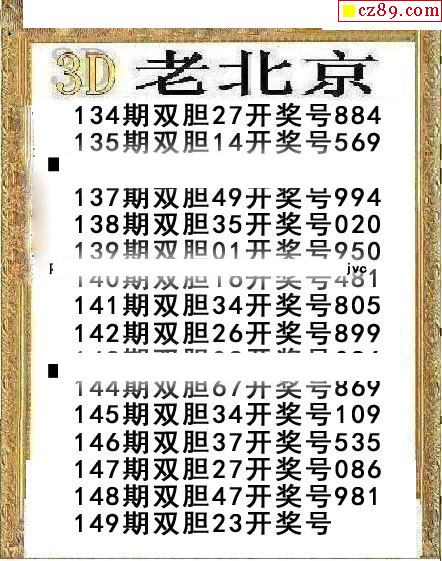 cz89.com
3D 老北京
134期双胆27开奖号884
135期双胆14开奖号569
137期双胆49开奖号994
138期双胆35开奖号020
139期双胆01开奖号950
jvc
140期双胆16开奖号481
141期双胆34开奖号805
142期双胆26开奖号899
144期双胆67开奖号869
145期双胆34开奖号109
146期双胆37开奖号535
147期双胆27开奖号086
148期双胆47开奖号981
149期双胆23开奖号